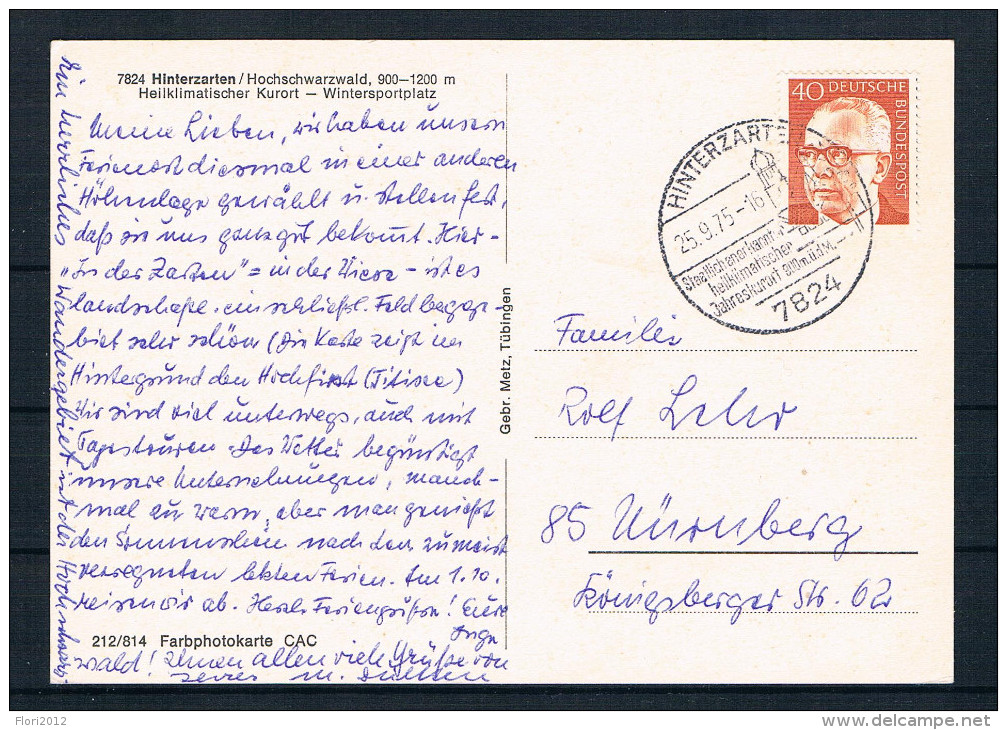 7824 Hinterzarten / Hochschwarzwald, 900–1200 m
Heilklimatischer Kurort – Wintersportplatz
Meine Lieben, wir haben unsern
Ferienort diesmal in einer anderen
Höhenlage gewählt u. stellen fest,
daß sie uns ganz gut bekomt. Hier -
„In der Zarten" = in der Wiese - ist es
landschaftl. einschließl. Feldberge-
biet sehr schön (Die Karte zeigt im
Hintergrund den Hochfirst (Titisee)
Wir sind viel unterwegs, auch mit
Tagestouren. Das Wetter begünstigt
unsere Unternehmungen, manch-
mal zu warm, aber man genießt
den Sonnenschein nach den zumeist
verregneten letzten Ferien. Am 1.10.
reisen wir ab. Herzl. Feriengrüße! Eure
Inge
Ein herrliches Wandergebiet ist der Hochschwarz-
wald! Ihnen allen viele Grüße von
212/814 Farbphotokarte CAC
Gebr. Metz, Tübingen
40 DEUTSCHE
BUNDESPOST
HINTERZARTEN
25.9.75-16
Staatlich anerkannter
heilklimatischer
Jahreskurort 900m.ü.d.M.
7824
Familie
Rolf Lehr
85 Nürnberg
Königsberger Str. 62
Flori2012
www.delcampe.net